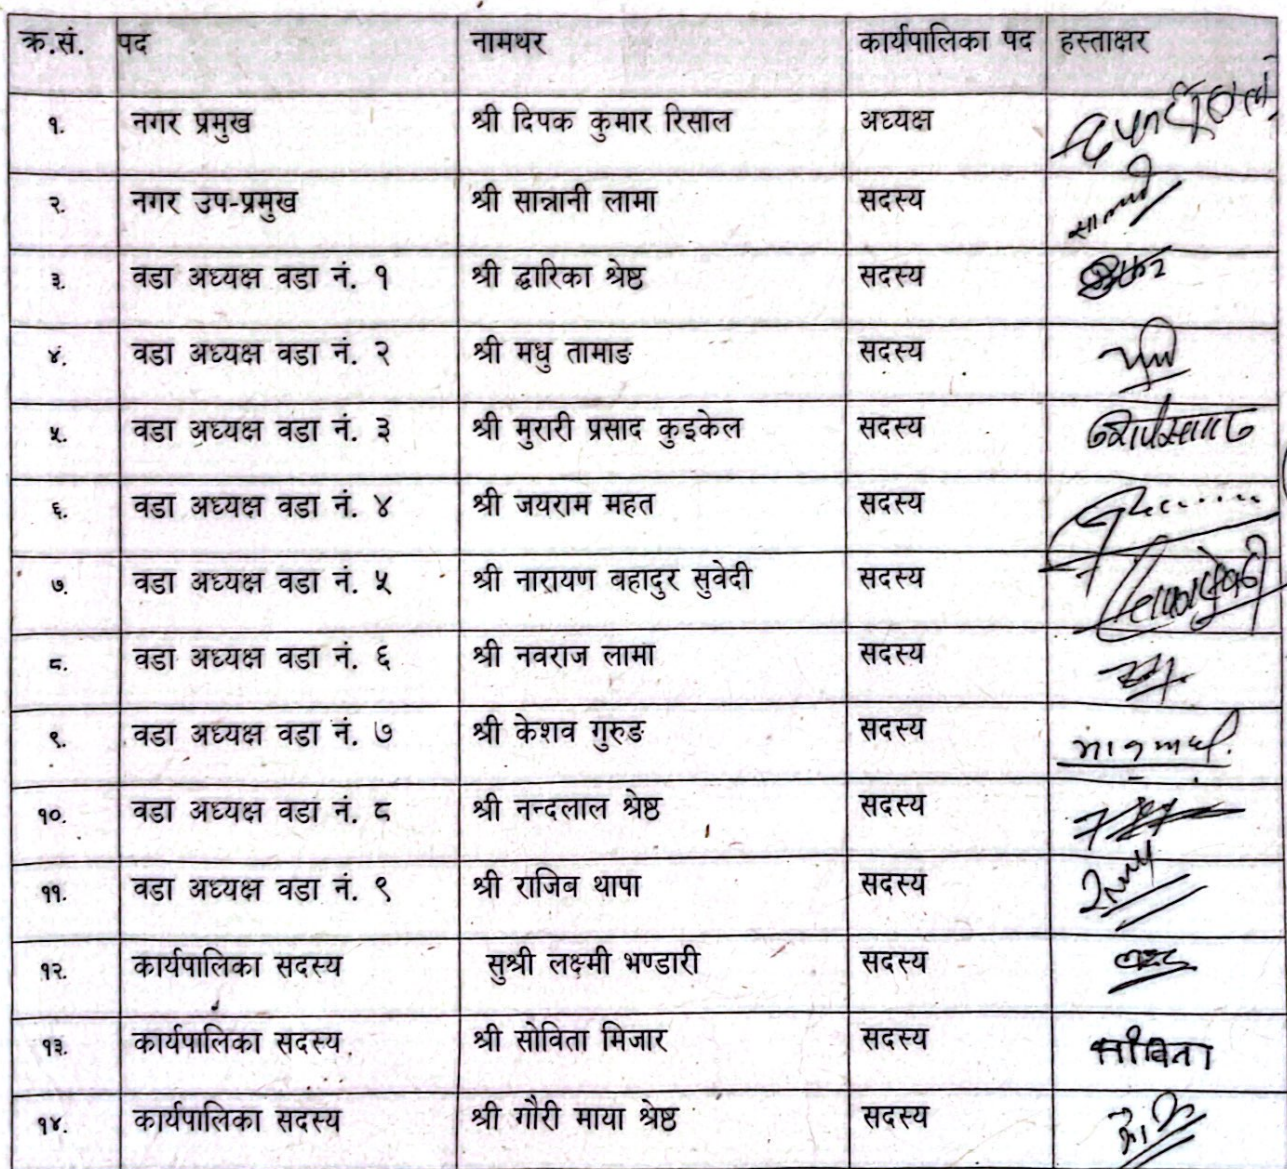 क्र.सं. पद नामथर कार्यपालिका पद हस्ताक्षर
१. नगर प्रमुख श्री दिपक कुमार रिसाल अध्यक्ष
२. नगर उप-प्रमुख श्री सान्नानी लामा सदस्य
३. वडा अध्यक्ष वडा नं. १ श्री द्वारिका श्रेष्ठ सदस्य
४. वडा अध्यक्ष वडा नं. २ श्री मधु तामाङ सदस्य
५. वडा अध्यक्ष वडा नं. ३ श्री मुरारी प्रसाद कुइकेल सदस्य
६. वडा अध्यक्ष वडा नं. ४ श्री जयराम महत सदस्य
७. वडा अध्यक्ष वडा नं. ५ श्री नारायण वहादुर सुवेदी सदस्य
८. वडा अध्यक्ष वडा नं. ६ श्री नवराज लामा सदस्य
९. वडा अध्यक्ष वडा नं. ७ श्री केशव गुरुङ सदस्य
१०. वडा अध्यक्ष वडा नं. ८ श्री नन्दलाल श्रेष्ठ सदस्य
११. वडा अध्यक्ष वडा नं. ९ श्री राजिव थापा सदस्य
१२. कार्यपालिका सदस्य सुश्री लक्ष्मी भण्डारी सदस्य
१३. कार्यपालिका सदस्य श्री सोविता मिजार सदस्य
१४. कार्यपालिका सदस्य श्री गौरी माया श्रेष्ठ सदस्य